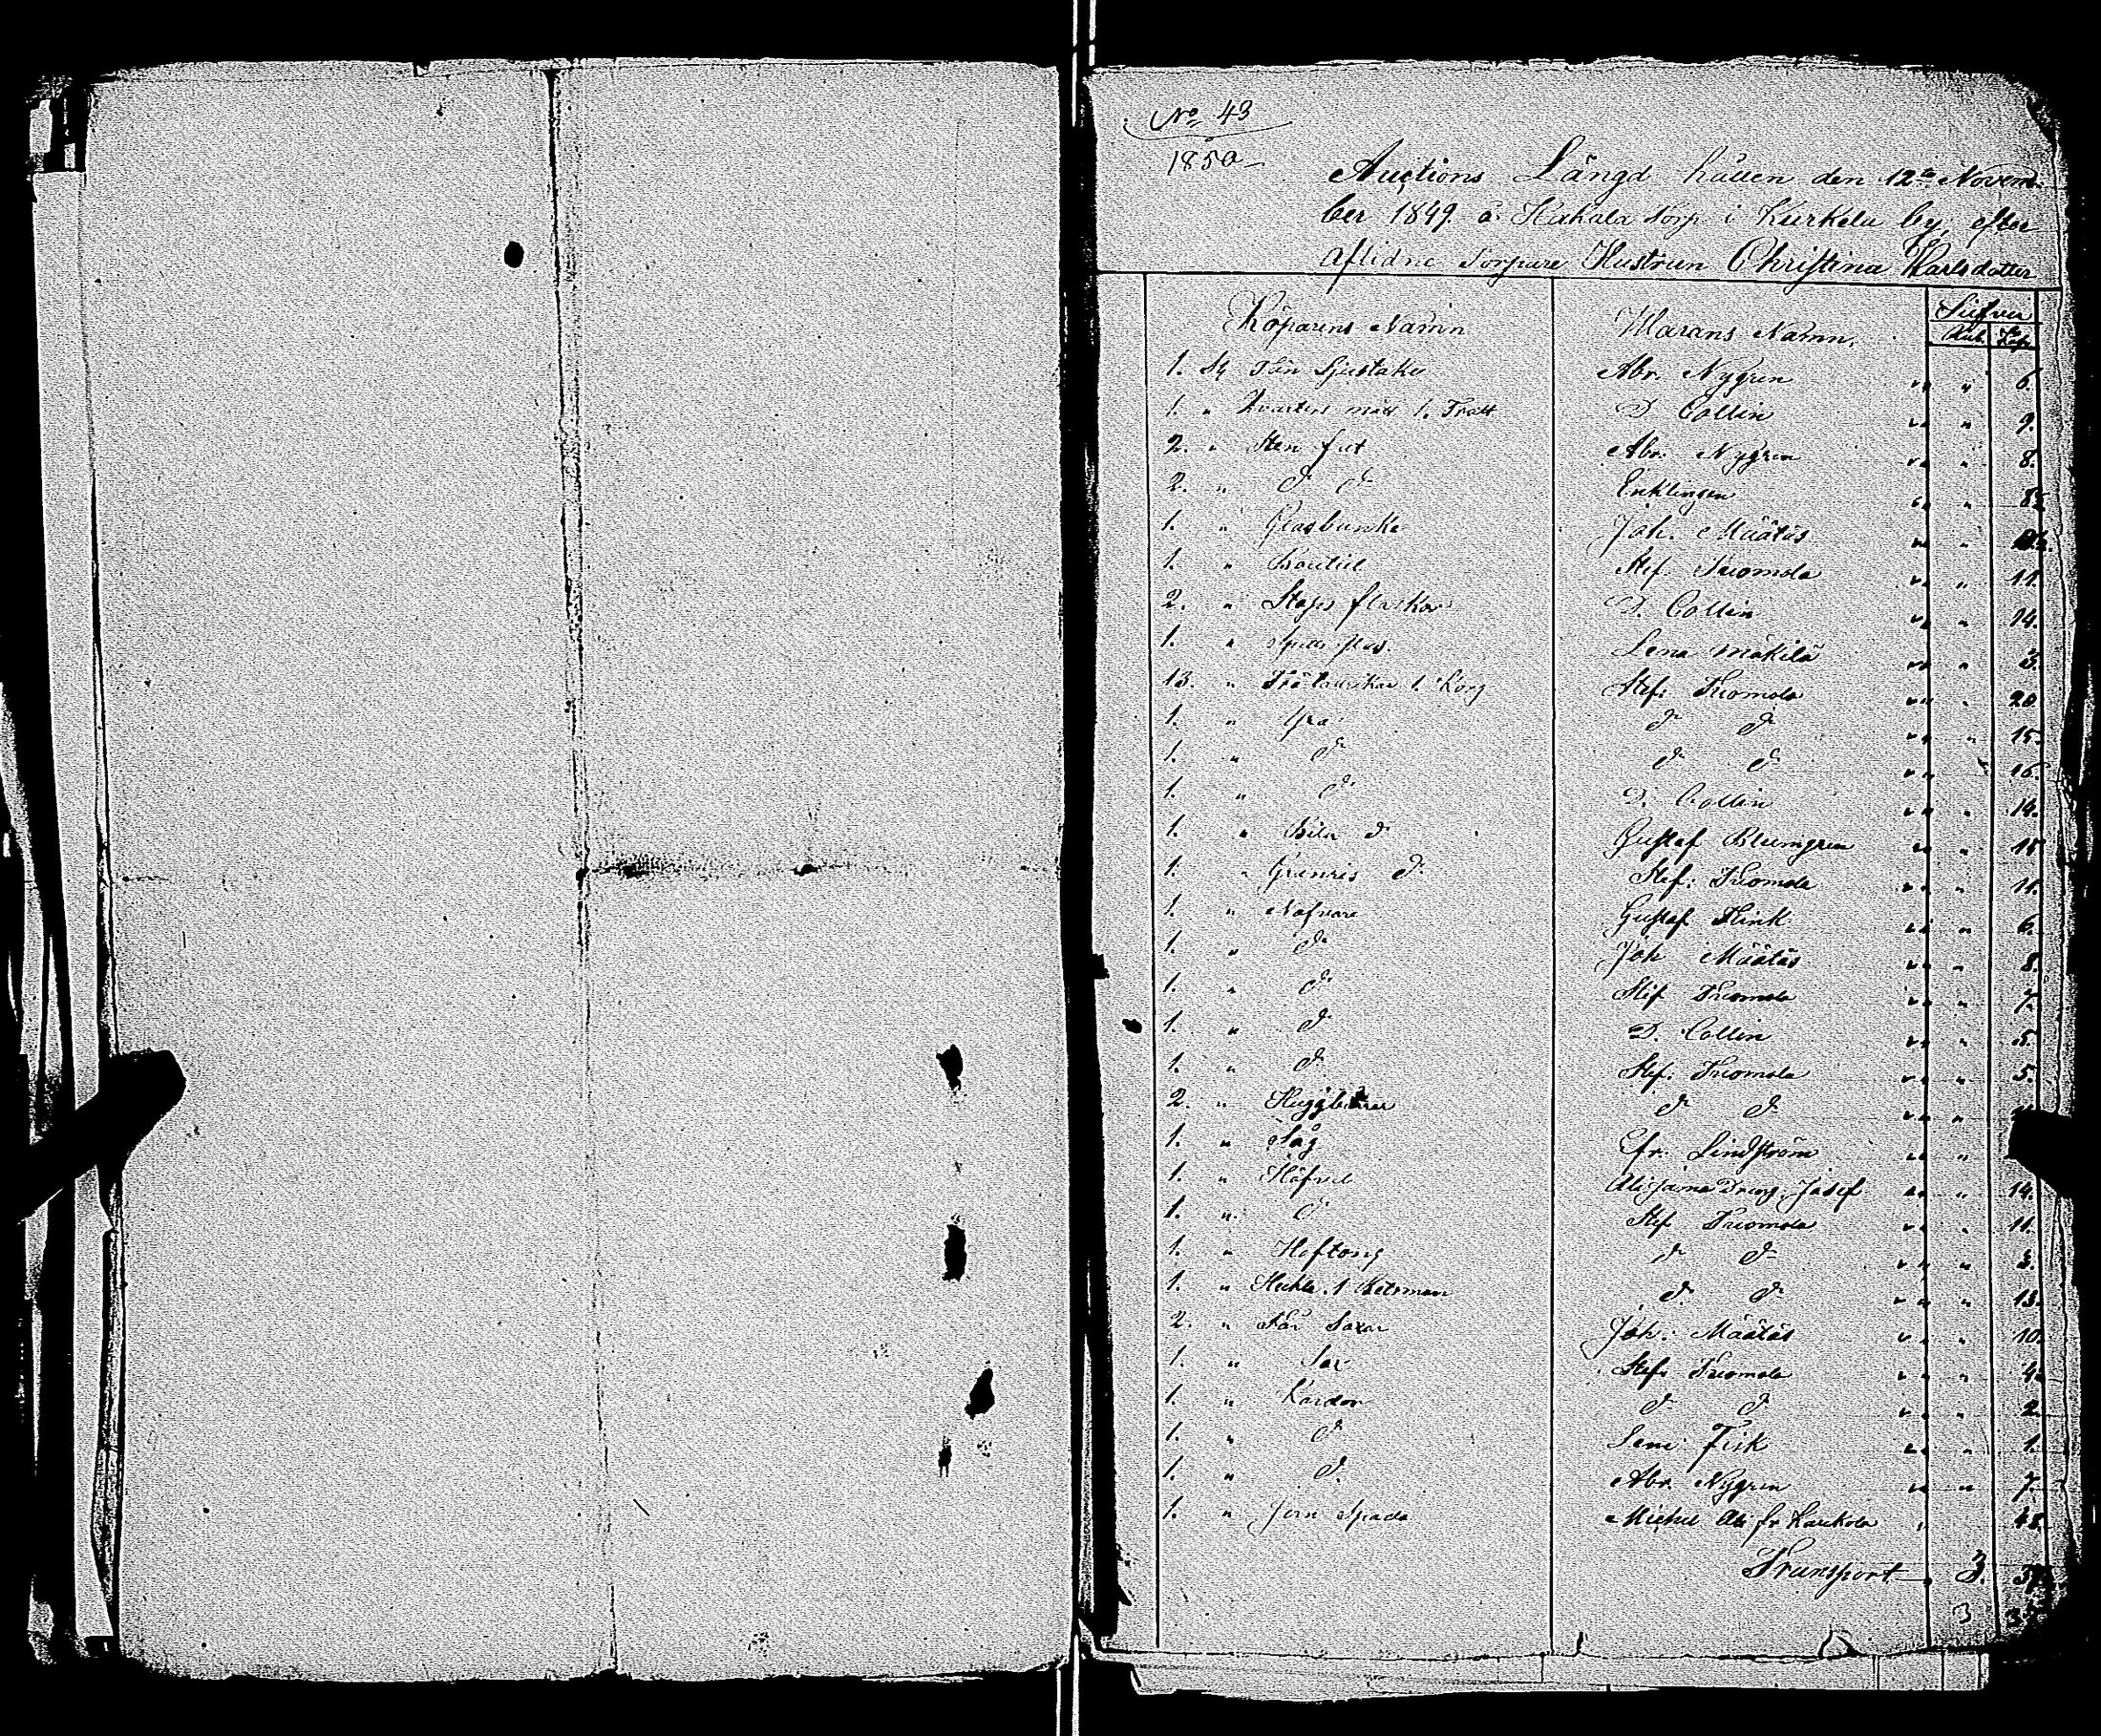 No 43
1850
Auctions Längd hållen den 12te Novem-
ber 1849 å Hakala torp i Kurkela by, efter
aflidne Torpare Hustrun Christina Karlsdotter
Köparens Namn Warans Namn. Silfver
Rub. Kop.
1. st Ljustake Abr. Nygren " " 6.
1. " Qvarters mått 1. Tratt D Collin " " 9.
2. " Sten fat Abr. Nygren " " 8.
2. " do do Enklingen " "
1. " Glasbunke Joh. Määtäs " "
1. " Boutell Stef. Tuomola " " 11.
2. " Stops flaskor D. Collin " " 14.
1. " Lena Mäkilä " " 3.
13. " 1. Korg Stef. Tuomola " " 20
1. " Yxa do do " " 15.
1. " do do do " " 16.
1. " do D. Collin " " 14.
1. " Bila do Gustaf Blumgren " "
1. " Grenris do Stef. Tuomola " " 11.
1. " Nafvare Gustaf Flink " " 6.
1. " do Joh Määtäs " " 8.
1. " do Stef Tuomola " " 7.
1. " do D. Collin " " 5.
1. " do Stef. Tuomola " " 5.
2. " do do " "
1. " Såg Efr. Lindström " "
1. " Höfvel Dreng Josef " " 14.
1. " do Stef Tuomola " " 11.
1. " Hoftång do do " "
1. " Häckla. 1 Betsman do do " " 13.
2. " Får Saxar Joh. Määtäs " " 10.
1. " Sax Stef. Tuomola " " 4.
1. " Kardor do do " " 2.
1. " do Lena Fisk " " 1.
1. " do Abr. Nygren " " 7.
1. " Jern Spada Michel fr Karkola "
Transport 3.
3